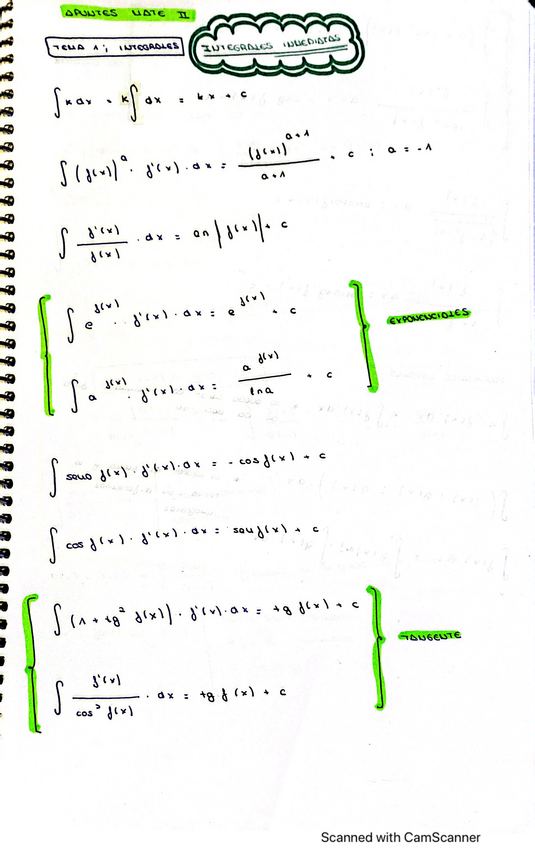 APUNTES MATE II
TEMA 1; INTEGRALES
INTEGRALES INMEDIATAS
∫ k dx = k ∫ dx = kx + c
∫ (f(x))^a · f'(x) · dx = (f(x))^(a+1) / (a+1) + c ; a = -1
∫ f'(x) / f(x) · dx = ln |f(x)| + c
∫ e^f(x) · f'(x) · dx = e^f(x) + c
EXPONENCIALES
∫ a^f(x) · f'(x) · dx = a^f(x) / ln a + c
∫ seno f(x) · f'(x) · dx = - cos f(x) + c
∫ cos f(x) · f'(x) · dx = sen f(x) + c
∫ (1 + tg² f(x)) · f'(x) · dx = tg f(x) + c
TANGENTE
∫ f'(x) / cos² f(x) · dx = tg f(x) + c
Scanned with CamScanner